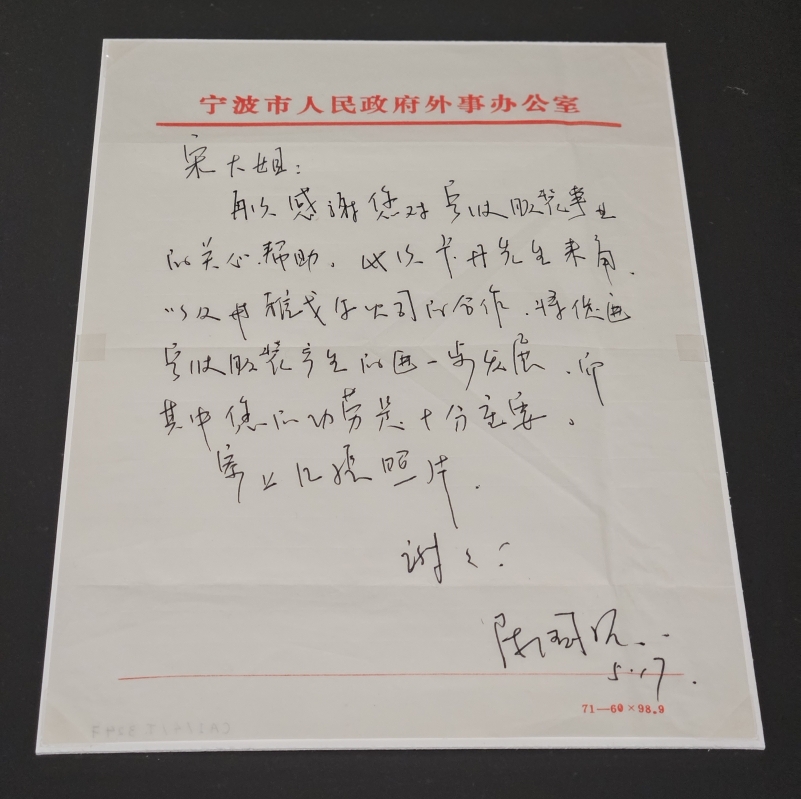 宁波市人民政府外事办公室
宋大姐：
再次感谢您对宁波服装事业
的关心帮助。此次卡丹先生来甬，
以及与雅戈尔公司的合作，将促进
宁波服装产生的进一步发展，而
其中您的功劳是十分重要。
寄上几张照片。
谢谢！
陈国
5.17.
71—60×98.9